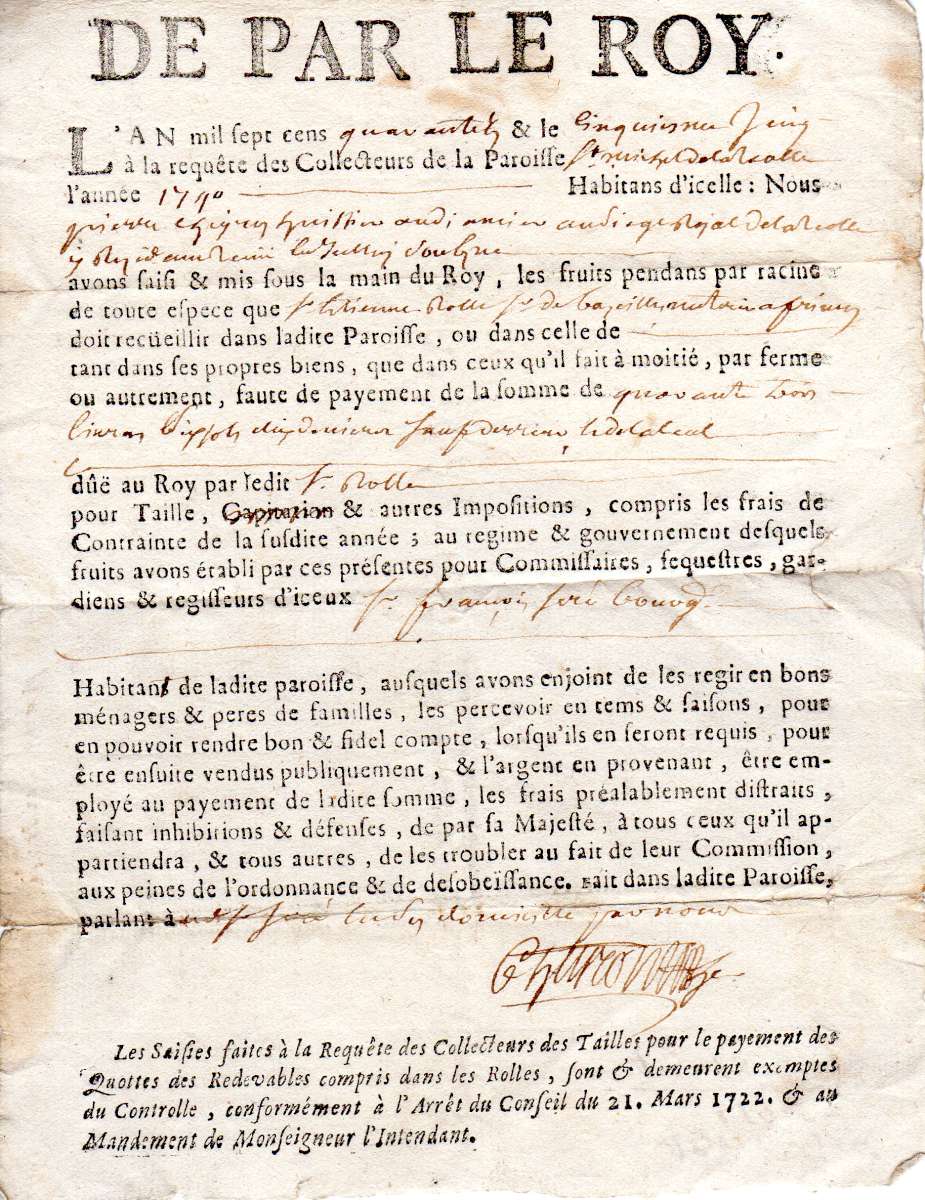 DE PAR LE ROY.
L'AN mil sept cens quarante & le Cinquiesme Juin
à la requête des Collecteurs de la Paroisse St. michel de la reolle
l'année 1740 Habitans d'icelle : Nous
pierre huissier audiancier au siege Royal de la reolle
y
avons saisi & mis sous la main du Roy, les fruits pendans par racine
de toute espece que Sr. Etienne Rolle Sr. de
doit recüeillir dans ladite Paroisse, ou dans celle de
tant dans ses propres biens, que dans ceux qu'il fait à moitié, par ferme
ou autrement, faute de payement de la somme de quarante trois
livres sols deniers sauf
dûë au Roy par ledit Sr. Rolle
pour Taille, Capitation & autres Impositions, compris les frais de
Contrainte de la susdite année ; au regime & gouvernement desquels
fruits avons établi par ces présentes pour Commissaires, sequestres, gar-
diens & regisseurs d'iceux Sr. françois
Habitans de ladite paroisse, ausquels avons enjoint de les regir en bons
ménagers & peres de familles, les percevoir en tems & saisons, pour
en pouvoir rendre bon & fidel compte, lorsqu'ils en seront requis, pour
être ensuite vendus publiquement, & l'argent en provenant, être em-
ployé au payement de ladite somme, les frais préalablement distraits,
faisant inhibitions & défenses, de par sa Majesté, à tous ceux qu'il ap-
partiendra, & tous autres, de les troubler au fait de leur Commission,
aux peines de l'ordonnance & de desobeïssance. Fait dans ladite Paroisse,
parlant à domicille par nous
Les Saisies faites à la Requête des Collecteurs des Tailles pour le payement des
Quottes des Redevables compris dans les Rolles, sont & demeurent exemptes
du Controlle, conformément à l'Arrêt du Conseil du 21. Mars 1722. & au
Mandement de Monseigneur l'Intendant.